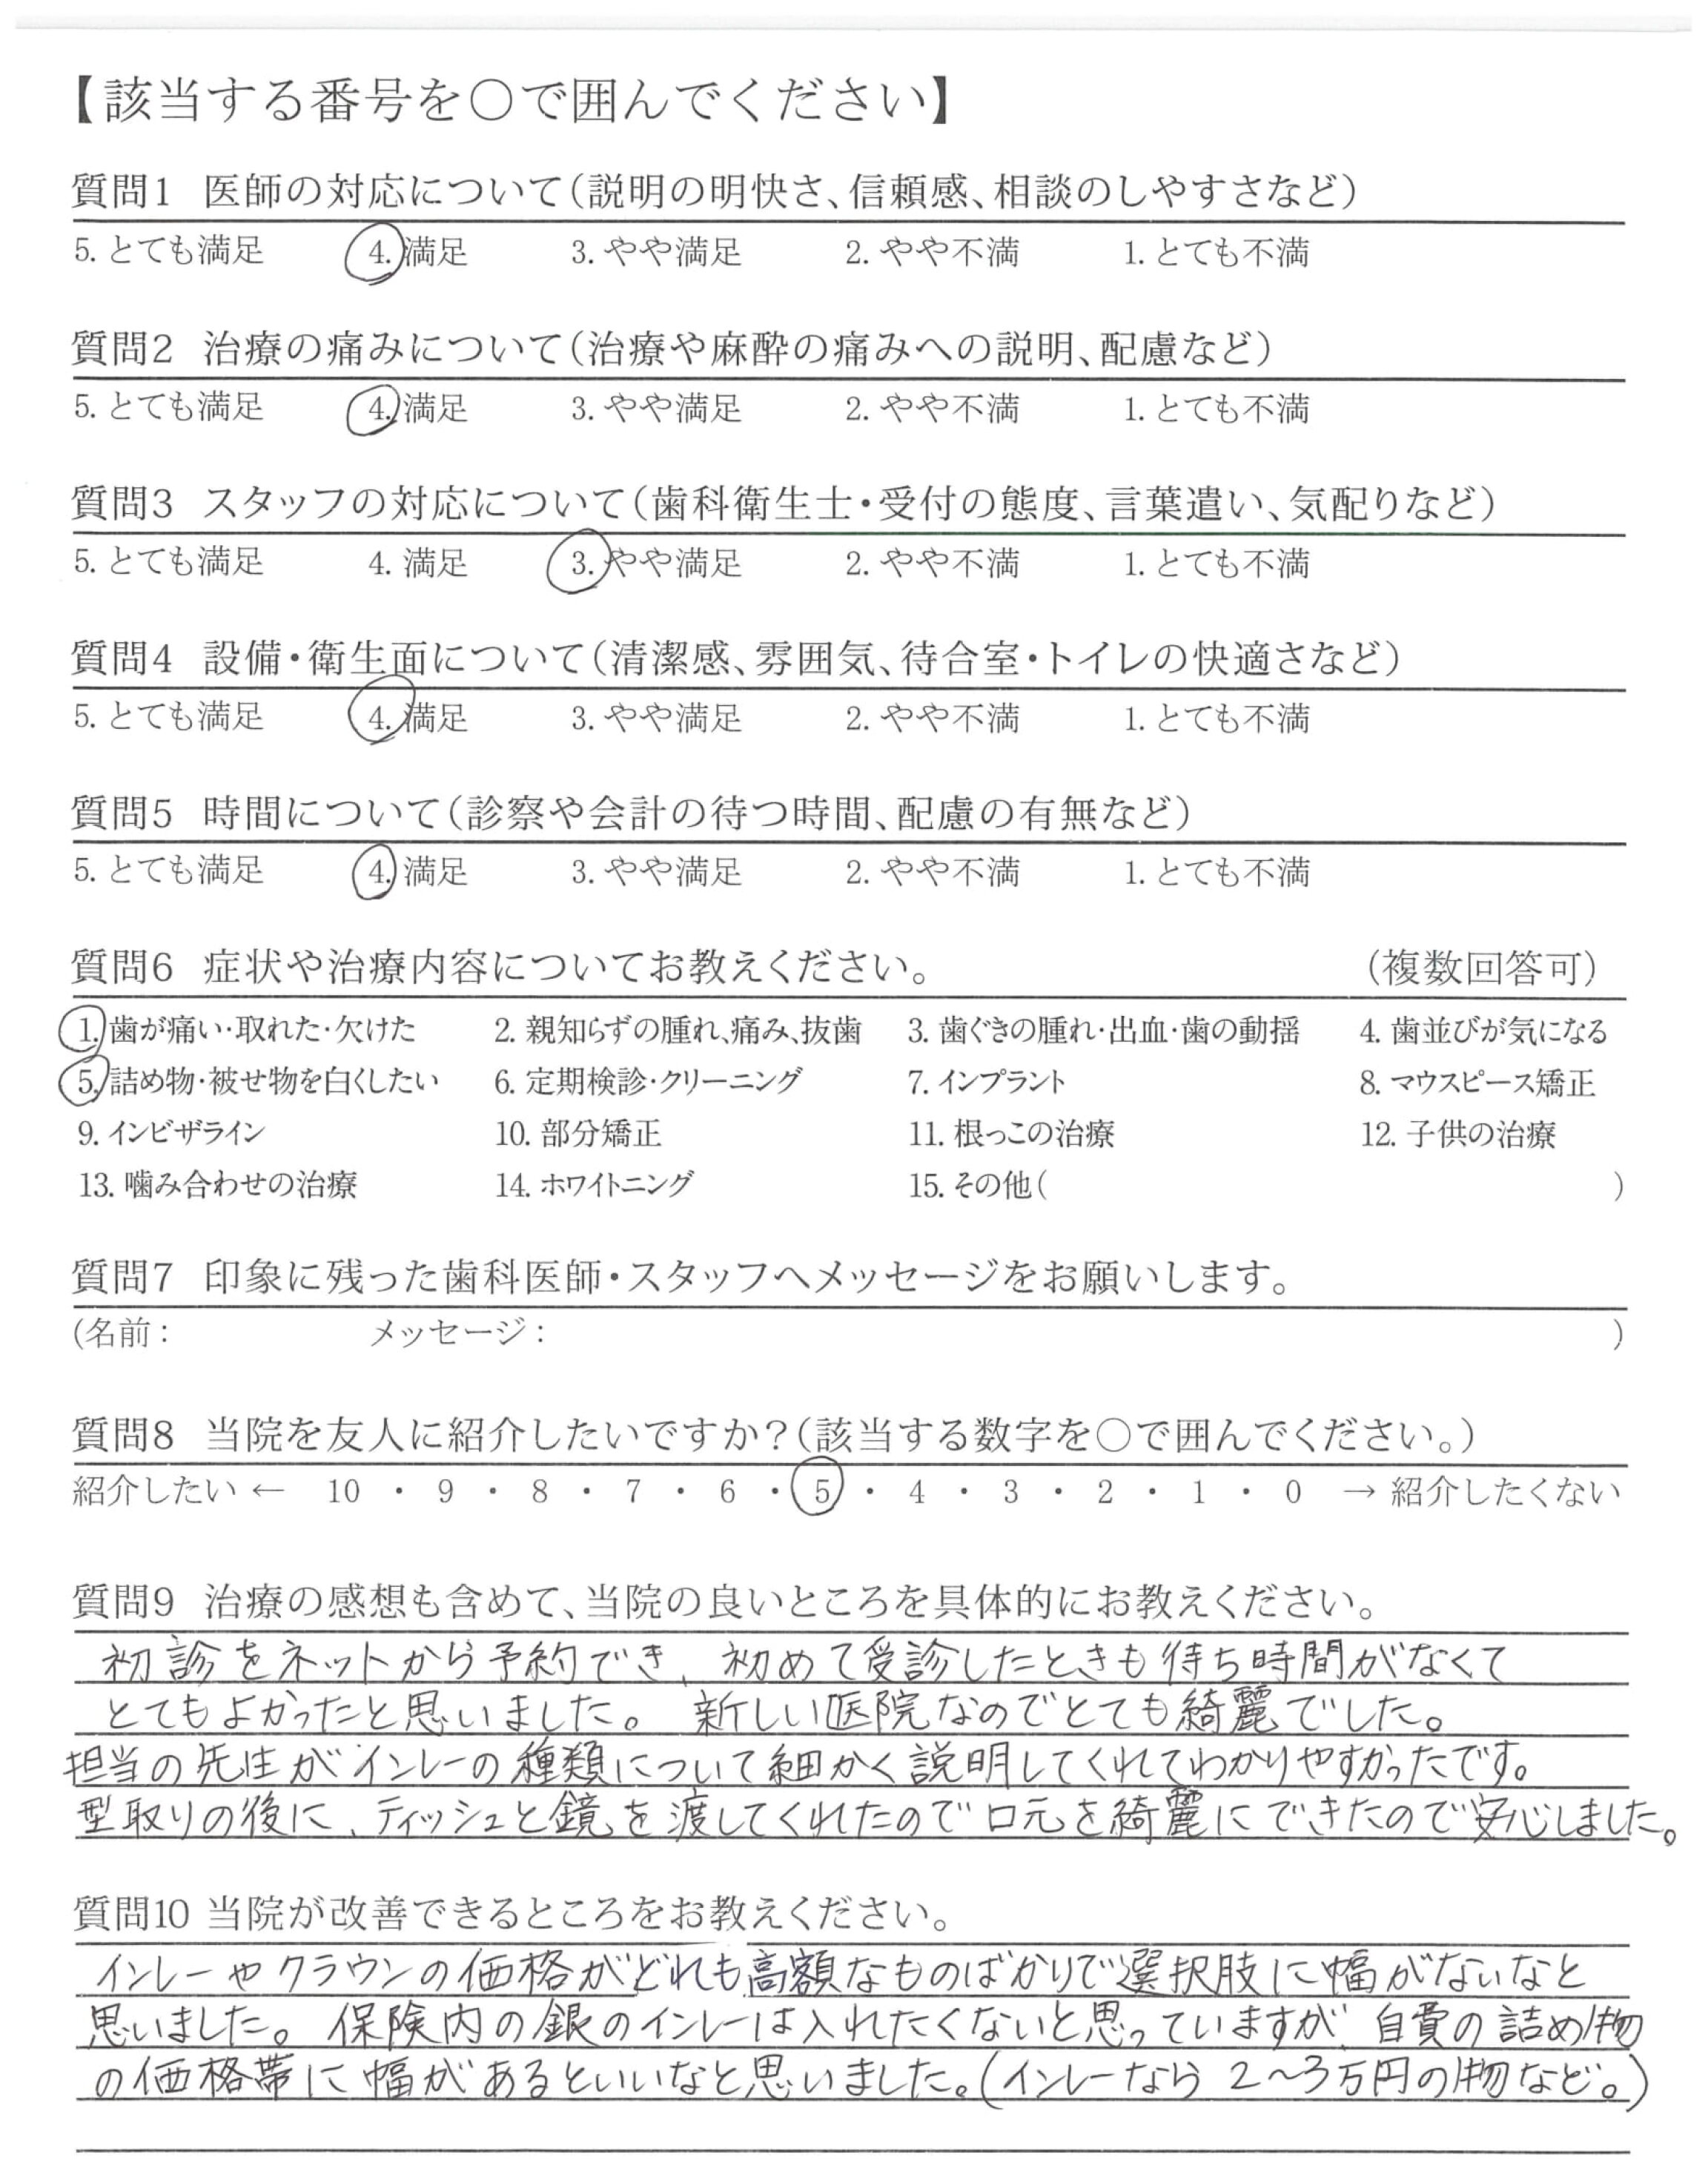 【該当する番号を〇で囲んでください】
質問1 医師の対応について(説明の明快さ、信頼感、相談のしやすさなど)
5. とても満足 4. 満足 3. やや満足 2. やや不満 1. とても不満
質問2 治療の痛みについて(治療や麻酔の痛みへの説明、配慮など)
5. とても満足 4. 満足 3. やや満足 2. やや不満 1. とても不満
質問3 スタッフの対応について(歯科衛生士・受付の態度、言葉遣い、気配りなど)
5. とても満足 4. 満足 3. やや満足 2. やや不満 1. とても不満
質問4 設備・衛生面について(清潔感、雰囲気、待合室・トイレの快適さなど)
5. とても満足 4. 満足 3. やや満足 2. やや不満 1. とても不満
質問5 時間について(診察や会計の待つ時間、配慮の有無など)
5. とても満足 4. 満足 3. やや満足 2. やや不満 1. とても不満
質問6 症状や治療内容についてお教えください。 (複数回答可)
1. 歯が痛い・取れた・欠けた 2. 親知らずの腫れ、痛み、抜歯 3. 歯ぐきの腫れ・出血・歯の動揺 4. 歯並びが気になる
5. 詰め物・被せ物を白くしたい 6. 定期検診・クリーニング 7. インプラント 8. マウスピース矯正
9. インビザライン 10. 部分矯正 11. 根っこの治療 12. 子供の治療
13. 噛み合わせの治療 14. ホワイトニング 15. その他( )
質問7 印象に残った歯科医師・スタッフへメッセージをお願いします。
(名前: メッセージ: )
質問8 当院を友人に紹介したいですか?(該当する数字を〇で囲んでください。)
紹介したい ← 10 ・ 9 ・ 8 ・ 7 ・ 6 ・ 5 ・ 4 ・ 3 ・ 2 ・ 1 ・ 0 → 紹介したくない
質問9 治療の感想も含めて、当院の良いところを具体的にお教えください。
初診をネットから予約でき、初めて受診したときも待ち時間がなくて
とてもよかったと思いました。 新しい医院なのでとても綺麗でした。
担当の先生がインレーの種類について細かく説明してくれてわかりやすかったです。
型取りの後に、ティッシュと鏡を渡してくれたので口元を綺麗にできたので安心しました。
質問10 当院が改善できるところをお教えください。
インレーやクラウンの価格がどれも高額なものばかりで選択肢に幅がないなと
思いました。保険内の銀のインレーは入れたくないと思っていますが、自費の詰め物
の価格帯に幅があるといいなと思いました。(インレーなら 2〜3万円の物など。)